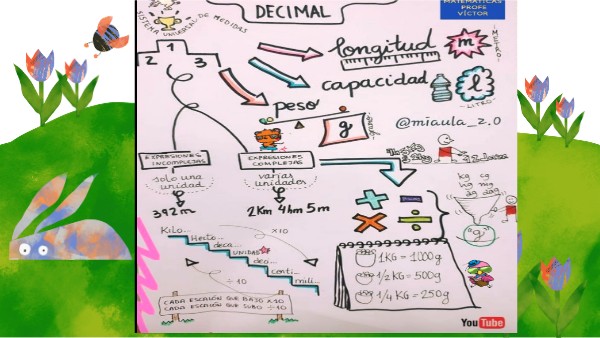 DECIMAL
MATEMÁTICAS
PROFE
VÍCTOR
SISTEMA UNIVERSAL DE MEDIDAS
1
2
3
longitud
m
METRO
capacidad
l
LITRO
peso
g
gramo
@miaula_2.0
EXPRESIONES
INCOMPLEJAS
EXPRESIONES
COMPLEJAS
solo una
unidad
varias
unidades
392m
2Km 4hm 5m
kg cg
dg
"g"
Kilo...
Hecto...
deca...
UNIDAD
deci...
centi...
mili...
x10
÷10
CADA ESCALÓN QUE BAJO x10
CADA ESCALÓN QUE SUBO ÷10
1KG = 1000g
1/2 KG = 500g
1/4 KG = 250g
YouTube